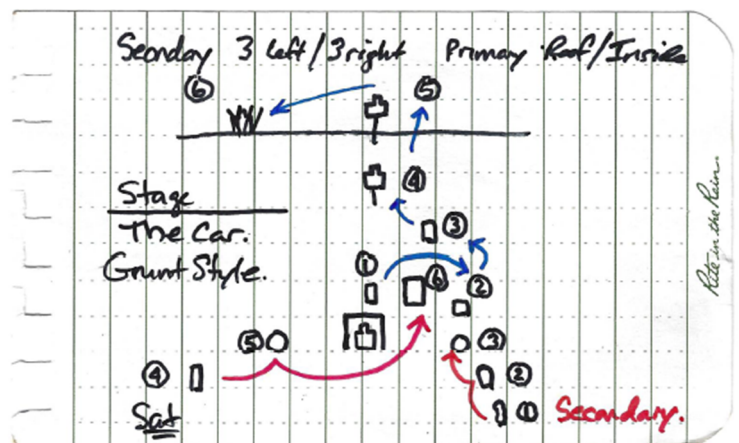 Seonday 3 left/3right Primary Roof/Inside
⑥ ⑤
④
Stage
③
The Car.
Grunt Style.
① ⑥ ②
⑤ ③
④ ②
Sat ① Secondary.
Rite in the Rain